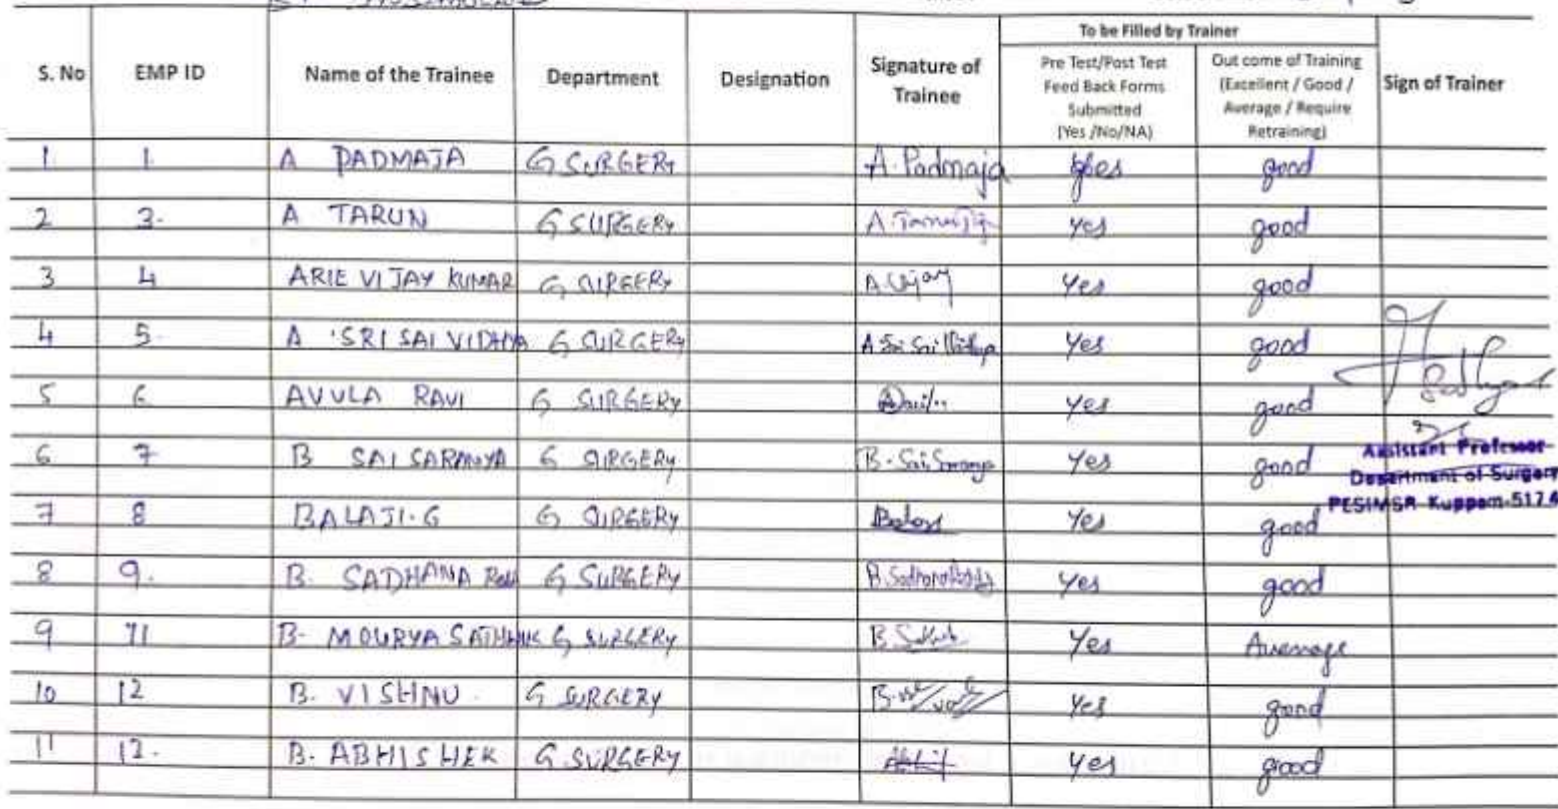 To be Filled by Trainer
S. No EMP ID Name of the Trainee Department Designation Signature of Trainee Pre Test/Post Test Feed Back Forms Submitted (Yes /No/NA) Out come of Training (Excellent / Good / Average / Require Retraining) Sign of Trainer
1 1 A PADMAJA G SURGERY A. Padmaja yes good
2 3. A TARUN G SURGERY yes good
3 4 ARIE VIJAY KUMAR G SURGERY A Vijay yes good
4 5. A SRI SAI VIDHYA G SURGERY A Sri Sai Vidhya yes good
5 6 AVVULA RAVI G SURGERY yes good
6 7 B SAI SARANYA G SURGERY B. Sai Saranya yes good
Assistant Professor
Department of Surgery
PESIMSR Kuppam-517.4
7 8 BALAJI.G G SURGERY yes good
8 9. B. SADHANA G SURGERY B. Sadhana Reddy yes good
9 11 B. MOURYA SATHWIK G SURGERY yes Average
10 12 B. VISHNU. G SURGERY yes good
11 12. B. ABHISHEK G SURGERY yes good